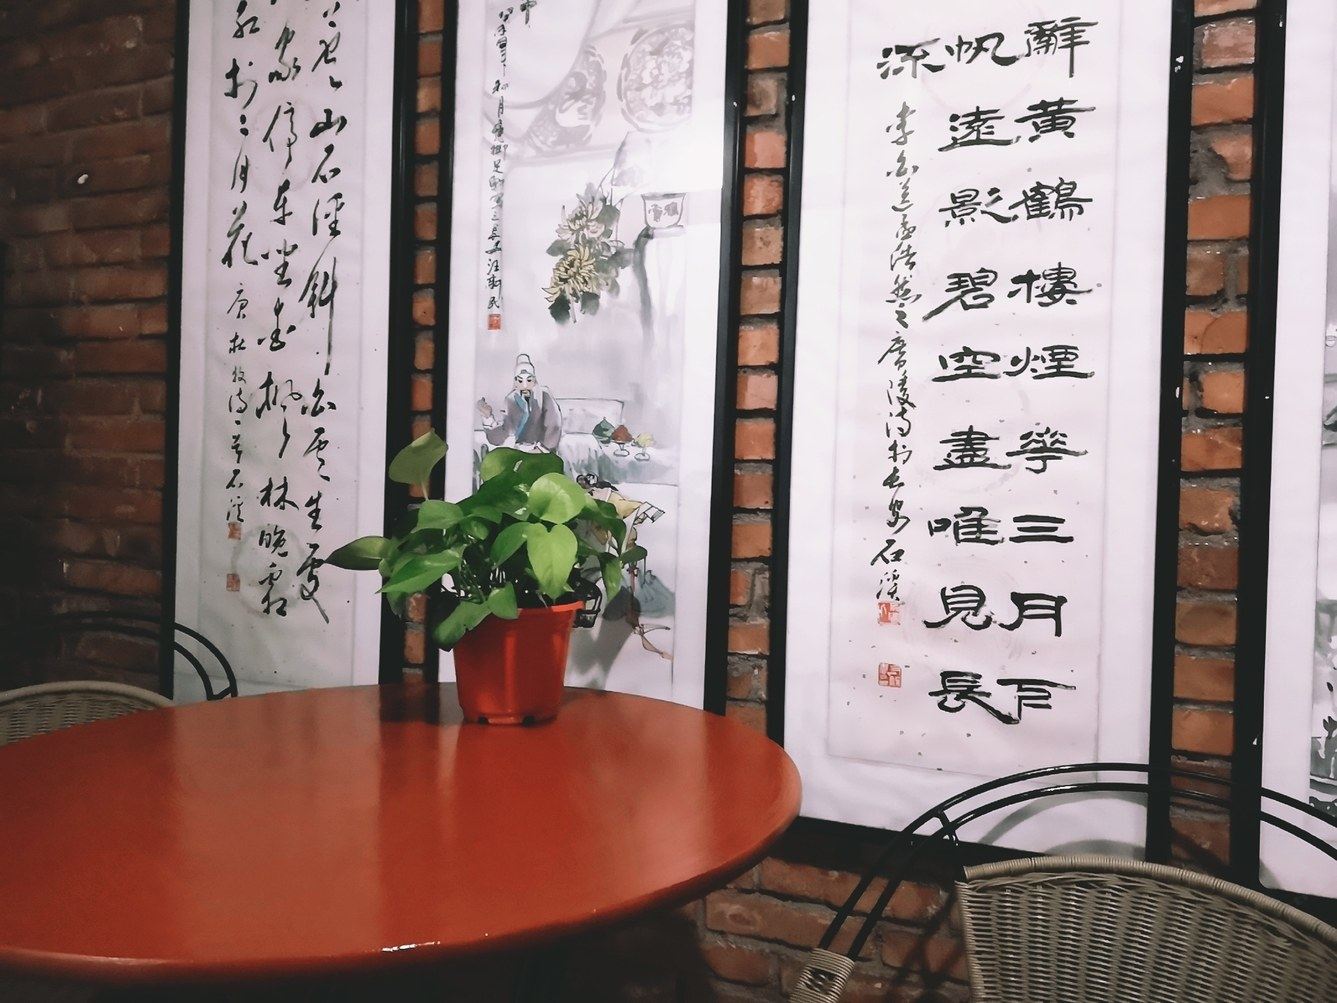 辭黃鶴樓煙華三月下
帆遠影碧空盡唯見長
流
李白送孟浩然之廣陵詩於長安石溪
上寒山石徑斜白雲生處
家停車坐愛楓林晚霜
紅於二月花
唐杜牧詩一首石溪